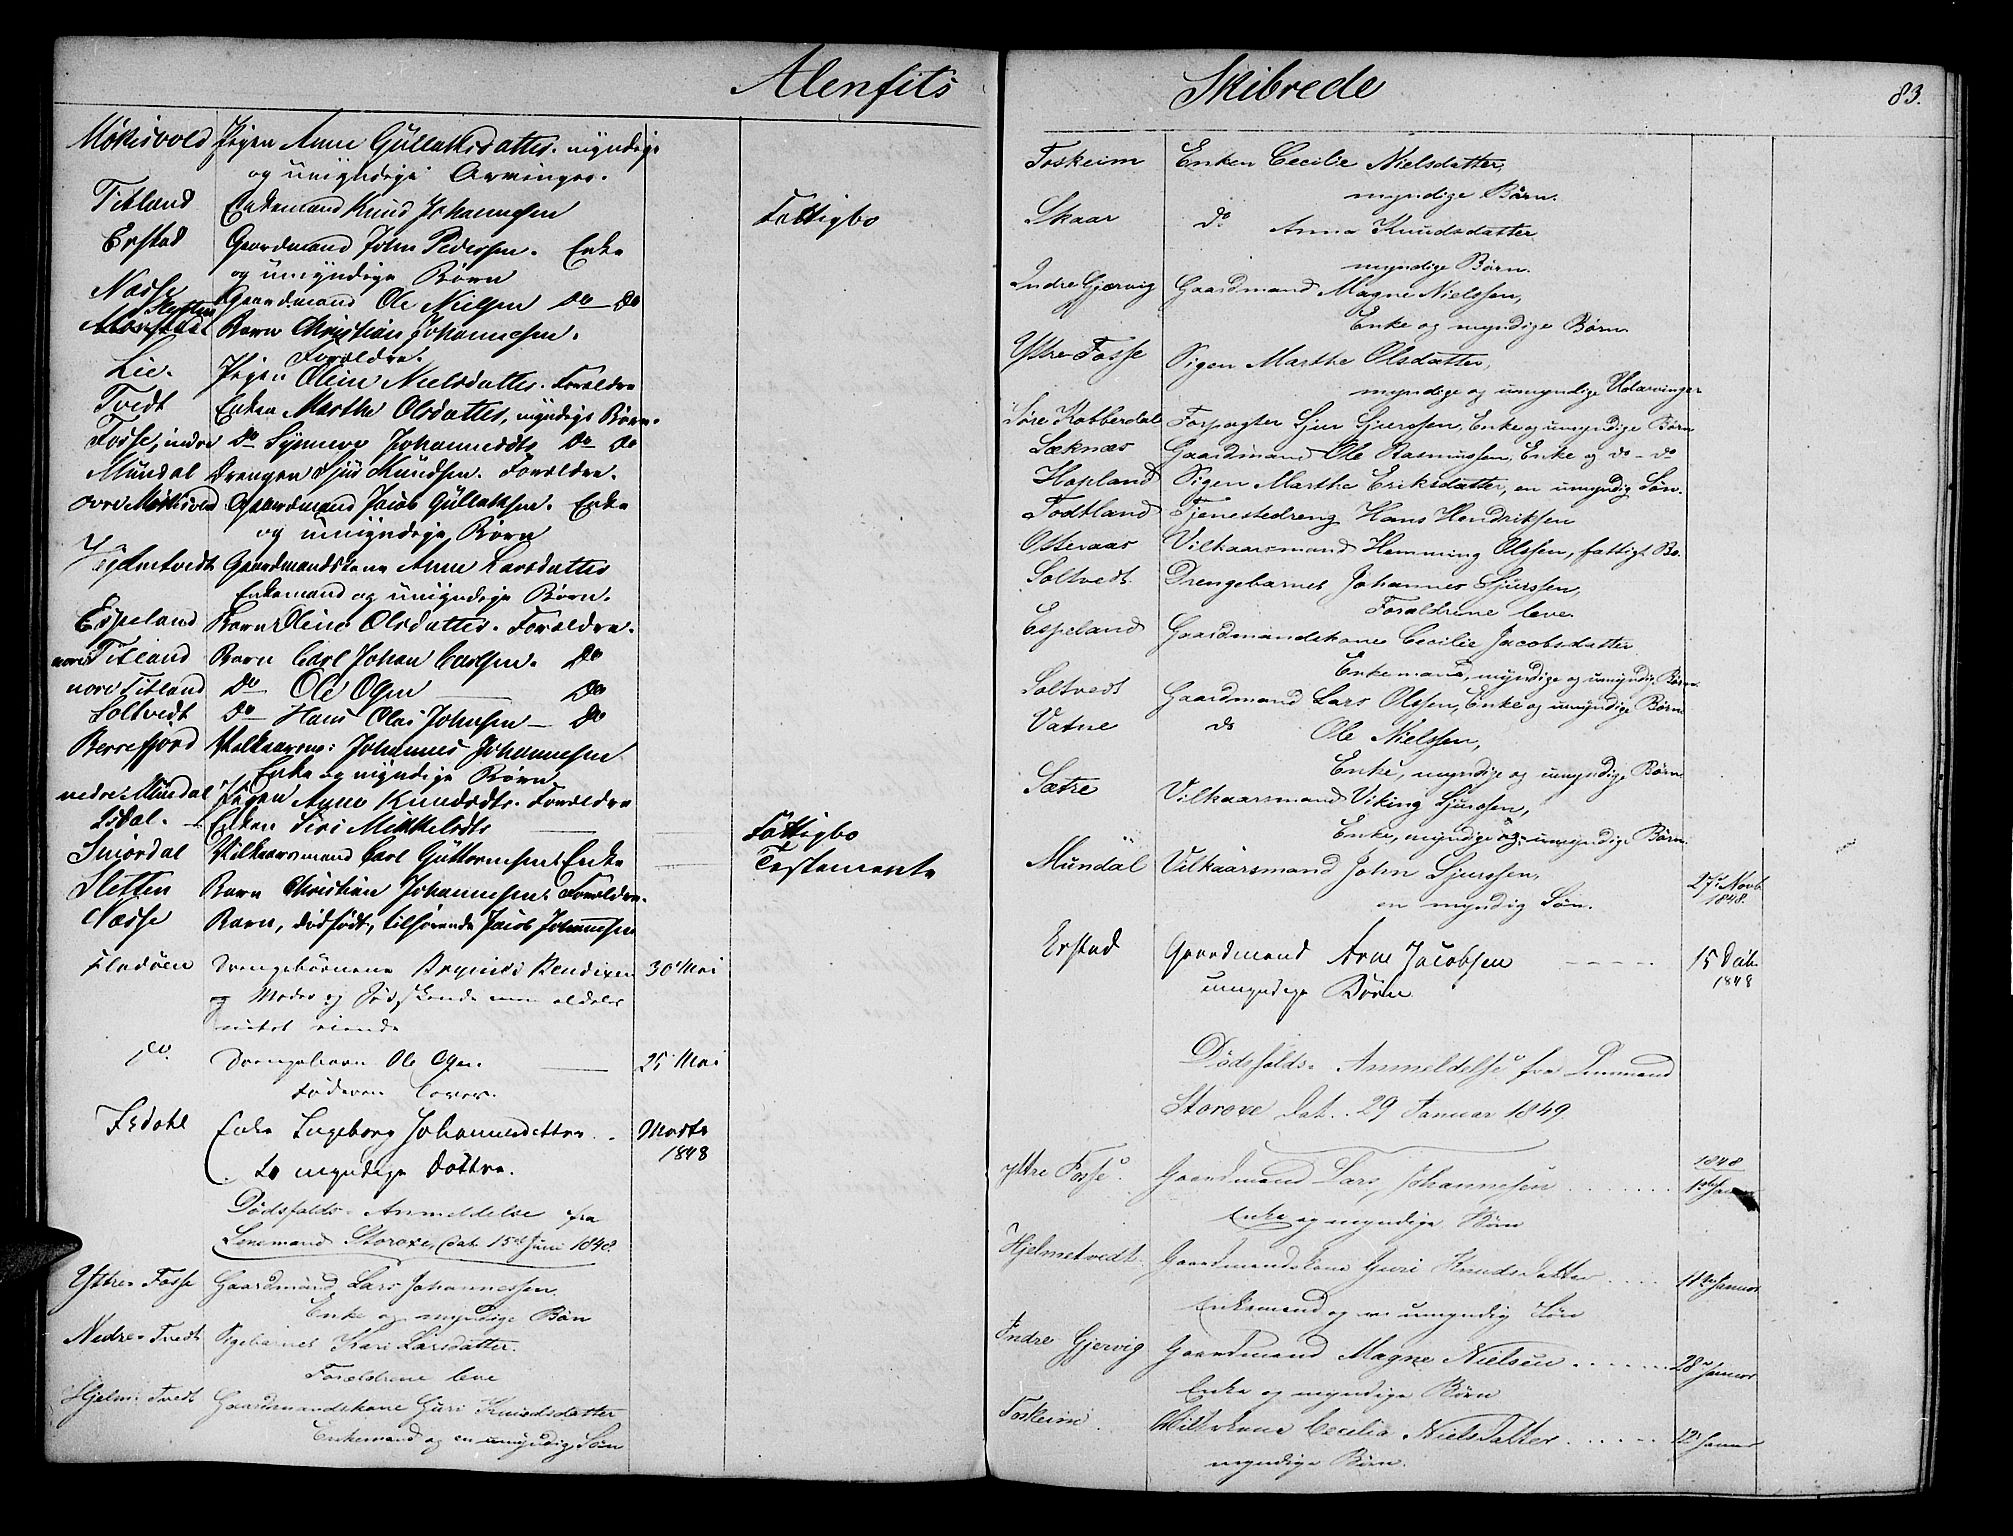 Alenfits
Mørkisvold Pigen Anne Gullaksdatter. myndige
og umyndige Arvinger.
Titland Enkemand Knud Johannesen Fattigbo
Erstad Gaardmand John Pedersen. Enke
og umyndige Børn
Nødse Gaardmand Ole Nielsen Do Do
Sletten Barn Christian Johannesen.
Forældre.
Lie. Pigen Oline Nielsdatter. Forældre
Tvedt Enken Marthe Olsdatter, myndige Børn.
Fosse, indre Do Synneve Johannesdtr Do Do
Mundal Drengen Sjur Knudsen. Forældre.
øvre Mørkisvold Gaardmand Jacob Gullaksen. Enke
og umyndige Børn
Hjelmtvedt Gaardmandskone Anne Larsdatter
Enkemand og umyndige Børn.
Espeland Barn Oline Olsdatter. Forældre.
nore Titland Barn Carl Johan Carlsen. Do
nore Titland Do Ole Olsen Do
Soltvedt Do Hans Olai Johnsen Do
Berrefjord Vilkaarsm: Johannes Johannesen
Enke og myndige Børn.
nedre Mundal Pigen Anne Knudsdtr. Forældre
Isdal. Enken Siri Mikkelsdtr Fattigbo
Smørdal Vilkaarsmand Carl Guttormsen Enke Testamente
Sletten Barn Christian Johannesen Forældre.
Nødse Barn, dødfødt, tilhørende Jacob Johannesen
Fladøen Drengebørnene Bendixen 30 Mai
og Moder og Sødskende
Do. Drengebarn Ole Olsen. 25 Mai
Faderen lever.
Isdahl Enke Ingeborg Johannesdatter. Marts
1848
to myndige Døttre.
Dødsfalds-Anmeldelse fra
Lensmand Storoxe, dat. 15de Juni 1848.
Yttre Fosse Gaardmand Lars Johannessen
Enke og myndige Børn
Nedre Tvedt Pigebarnet Kari Larsdatter.
Forældrene leve
Hjelm. Tvedt Gaardmandskone Guri Knudsdatter
Enkemand og en umyndig Søn
Skibrede 83.
Foskeim Enken Cecilie Nielsdatter,
myndige Børn.
Skaar do Anna Knudsdatter
myndige Børn.
Indre Gjervig Gaardmand Magne Nielssen,
Enke og myndige Børn.
Yttre Fosse Pigen Marthe Olsdatter,
myndige og umyndige Udarvinger
Søre Kobberdal Forpagter Sjur Sjurssen, Enke og umyndige Børn
Sæknæs Gaardmand Ole Rasmussen, Enke og do - do
Hopland Pigen Marthe Eriksdatter, en umyndig Søn.
Todtland Tjenestedreng Hans Hendriksen
Otteraas Vilkaarsmand Hemming Olssen, fattigt Bo.
Soltvedt Drengebarnet Johannes Sjurssen,
Forældrene leve.
Espeland Gaardmandskone Cecilie Jacobsdatter
Enkemand, myndige og umyndige Børn.
Soltvedt Gaardmand Lars Olssen, Enke og umyndige Børn
Vatne do Ole Nielssen,
Enke, myndige og umyndige Børn
Sætre Vilkaarsmand Viking Sjurssen,
Enke, myndige og umyndige Børn.
Mundal Vilkaarsmand John Sjurssen, 27 Novb.
1848.
en myndig Søn.
Erstad Gaardmand Arne Jacobsen 15 Debr
1848
umyndige Børn
Dødsfalds-Anmeldelse fra Lensmand
Storoxe dat. 29 Januar 1849.
1848
Yttre Fosse. Gaardmand Lars Johannesen Januar
Enke og myndige Børn
Hjelmetvedt. Gaardmandskone Guri Knudsdatter Januar
Enkemand og en umyndig Søn
Indre Gjervig Gaardmand Magne Nielsen 28 Januar
Enke og myndige Børn
Foskeim. Cecilia Nielsdatter 12 Januar
myndige Børn.